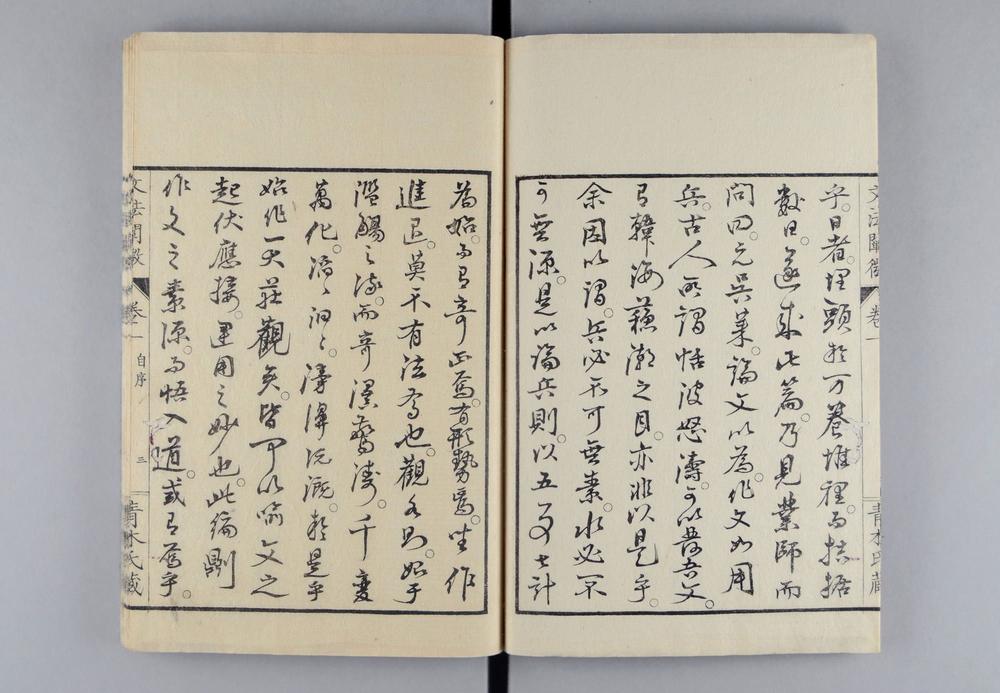 文法闡微 卷一
青木氏藏
乎。日者。埋頭於万卷堆裡。而捃摭
數日。遂成此篇。乃見業師而
問曰。元吳萊。論文以為。作文如用
兵。古人所謂恬波怒濤。可以昔吾文。
有韓海蘇潮之目。亦非以是乎。
余因以謂。兵必不可無素。水必不
可無源。是以論兵則以五事七計
為始。而有奇正焉。有形勢焉。坐作
進退。莫不有法為也。觀水則始于
濫觴之流。而奇濤千變
萬化。滔々汩々。於是乎
始作一大莊觀矣。皆可以喻文之
起伏應接。運用之妙也。此編則
作文之素源。而悟入道。或有為乎。
文法闡微 卷一 自序 三
青木氏藏